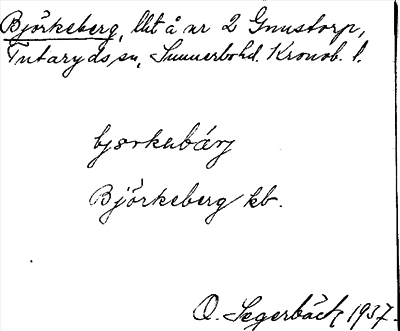 Björkeberg, llt å nr 2 Gnustorp,
Tutaryds sn, Sunnerbohd. Kronob. l.
bjørkabärj
Björkeberg kb.
O. Segerbäck 1937.